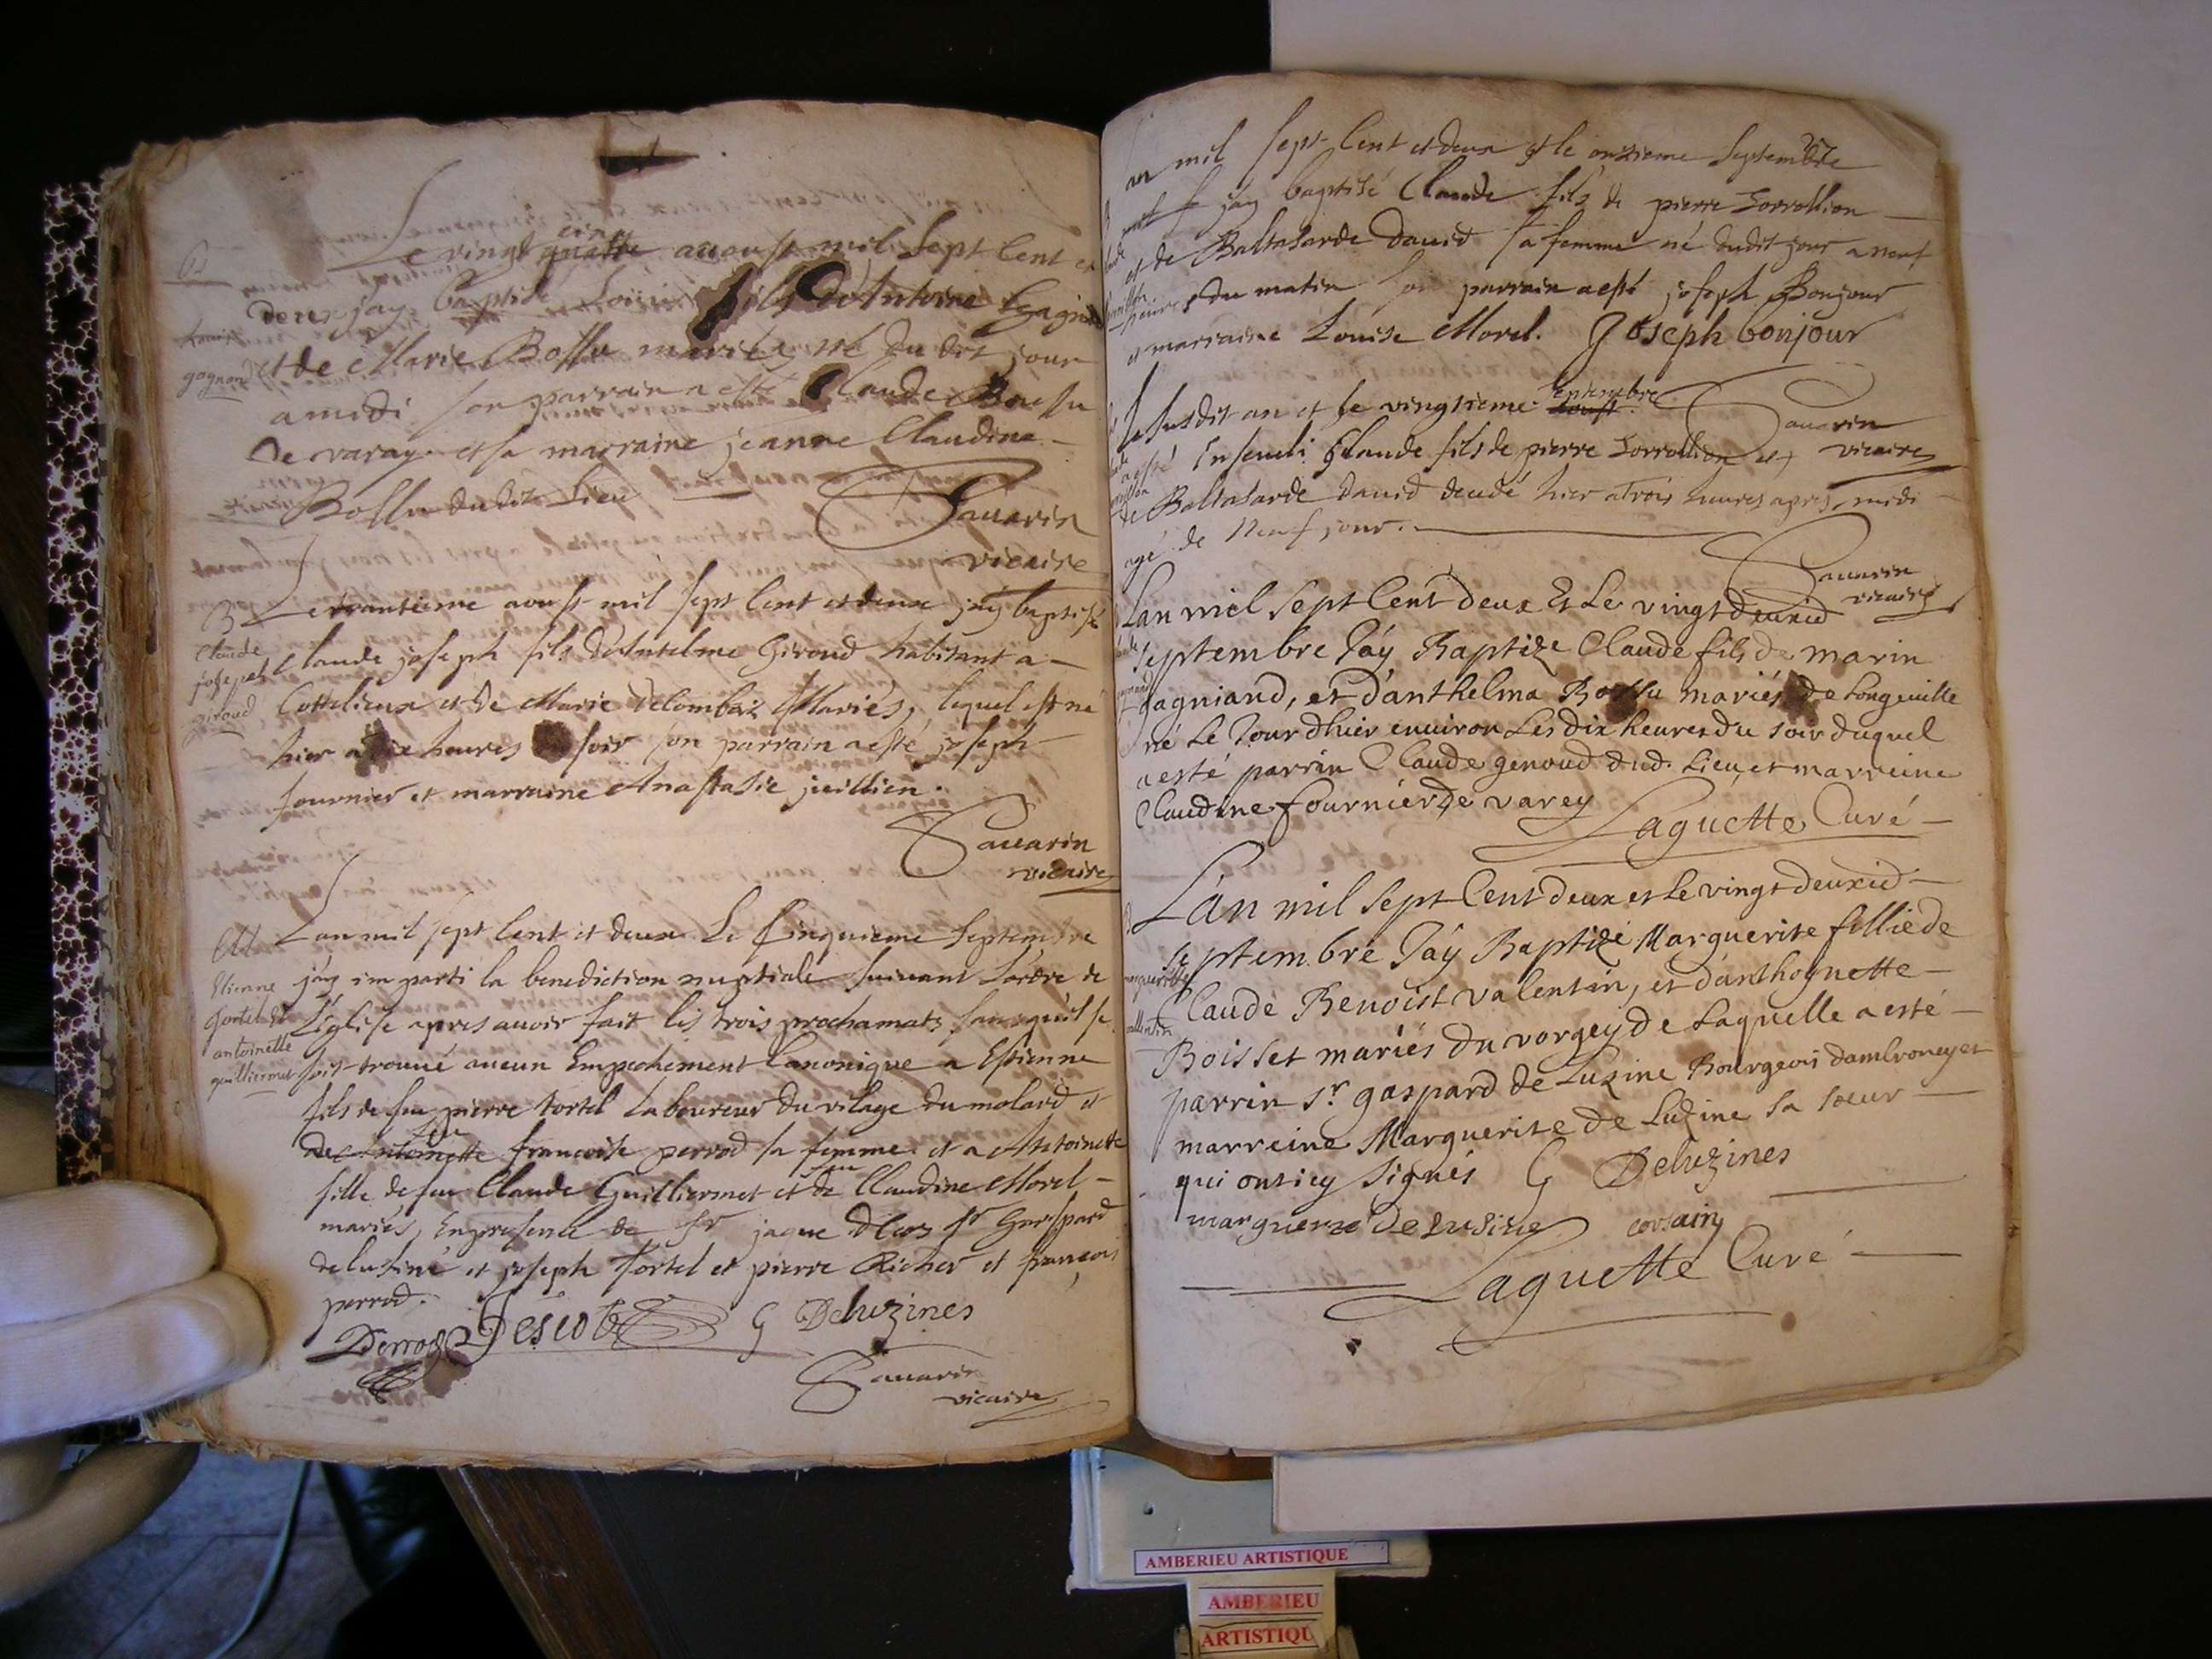 B
Le vingt quatre cinq aaoust mil sept Cent et
deux jay baptisé Loüis fils d'Antoine Gagniand
gagnand
et de Marie Bossu mariés né du dit jour
a midi son parrain a esté Claude Bossu
De varay et sa marraine jeanne Claudine
Bossu dudit Lieu
Sauarin
vicaire
B
Claude
josepat
giroud
Le trantieme aoust mil sept Cent et deux jáy baptisé
Claude joseph fils d'Antelme Giroud habitant a
Cottelieux et de Marie Delombaz Mariés, lequel est né
hier a heures soir son parrain a esté joseph
fournier et marraine Anastasie juillien.
Sauarin
vicaire
M
Etienne
tortel et
antoinette
guilliermet
Lan mil sept Cent et deux Le Cinquieme Septembre
jáy imparti la benediction nuptiale suiuant Lórdre de
L'églisse apres auoir fait les trois prochamats sans quíl se
soit trouué aucun Empechement Canonique a Estienne
fils de feu pierre tortel Laboureur du vilage du molard et
de Antoinette françoise perrod sa femme et a Antoinette
fille de feu Claude Guilliermet et de feu Claudine Morel
mariés, En presence de Sr jaque Sr Gaspard
delusine et joseph tortel et pierre Richer et françois
perrod.
Descotes G Deluzines
Sauarin
vicaire
an mil sept Cent et deux et le onzieme Septembre
jáy baptisé Claude fils de pierre Torrollion
et de Baltasarde Dauid sa femme né dudit jour a neuf
heures du matin son parrain a esté joseph Bonjour
et marraine Louise Morel. Joseph bonjour
Sauarin
vicaire
le susdit an et le vingtieme aoust septembre
a esté Enseueli Claude fils de pierre Torrollion et
de Baltasarde Dauid decedé hier a Trois heures apres midi
agé de Neuf jour.
Sauarin
vicaire
Lan miel Sept Cent deux Et Le vingt deuxid
Septembre Jáy Baptize Claude fils de marin
gagniand, et d'anthelma Bossu mariés de Longeuille
né Le Jourdhuer enuiron Les dix heures du soir duquel
a esté parrin Claude genoud dud. Lieu, et marreine
Claudine fournier de varey
Laguette Curé
L'an mil Sept Cent deux et Le vingt deuxid
marguerite
vallentin
Septembre Jáy Baptizé Marguerite fillie de
Claude Benoist valentin, et d'anthoynette
Boisset mariés du vorgey de Laquelle a esté
parrin Sr gaspard de Luzine Bourgeois dambroney et
marreine Marguerite de Luzine sa soeur
qui ont icy Signés G Deluzines
marguerite de Lusine
Laguette Curé
AMBERIEU ARTISTIQUE
AMBERIEU
ARTISTIQU